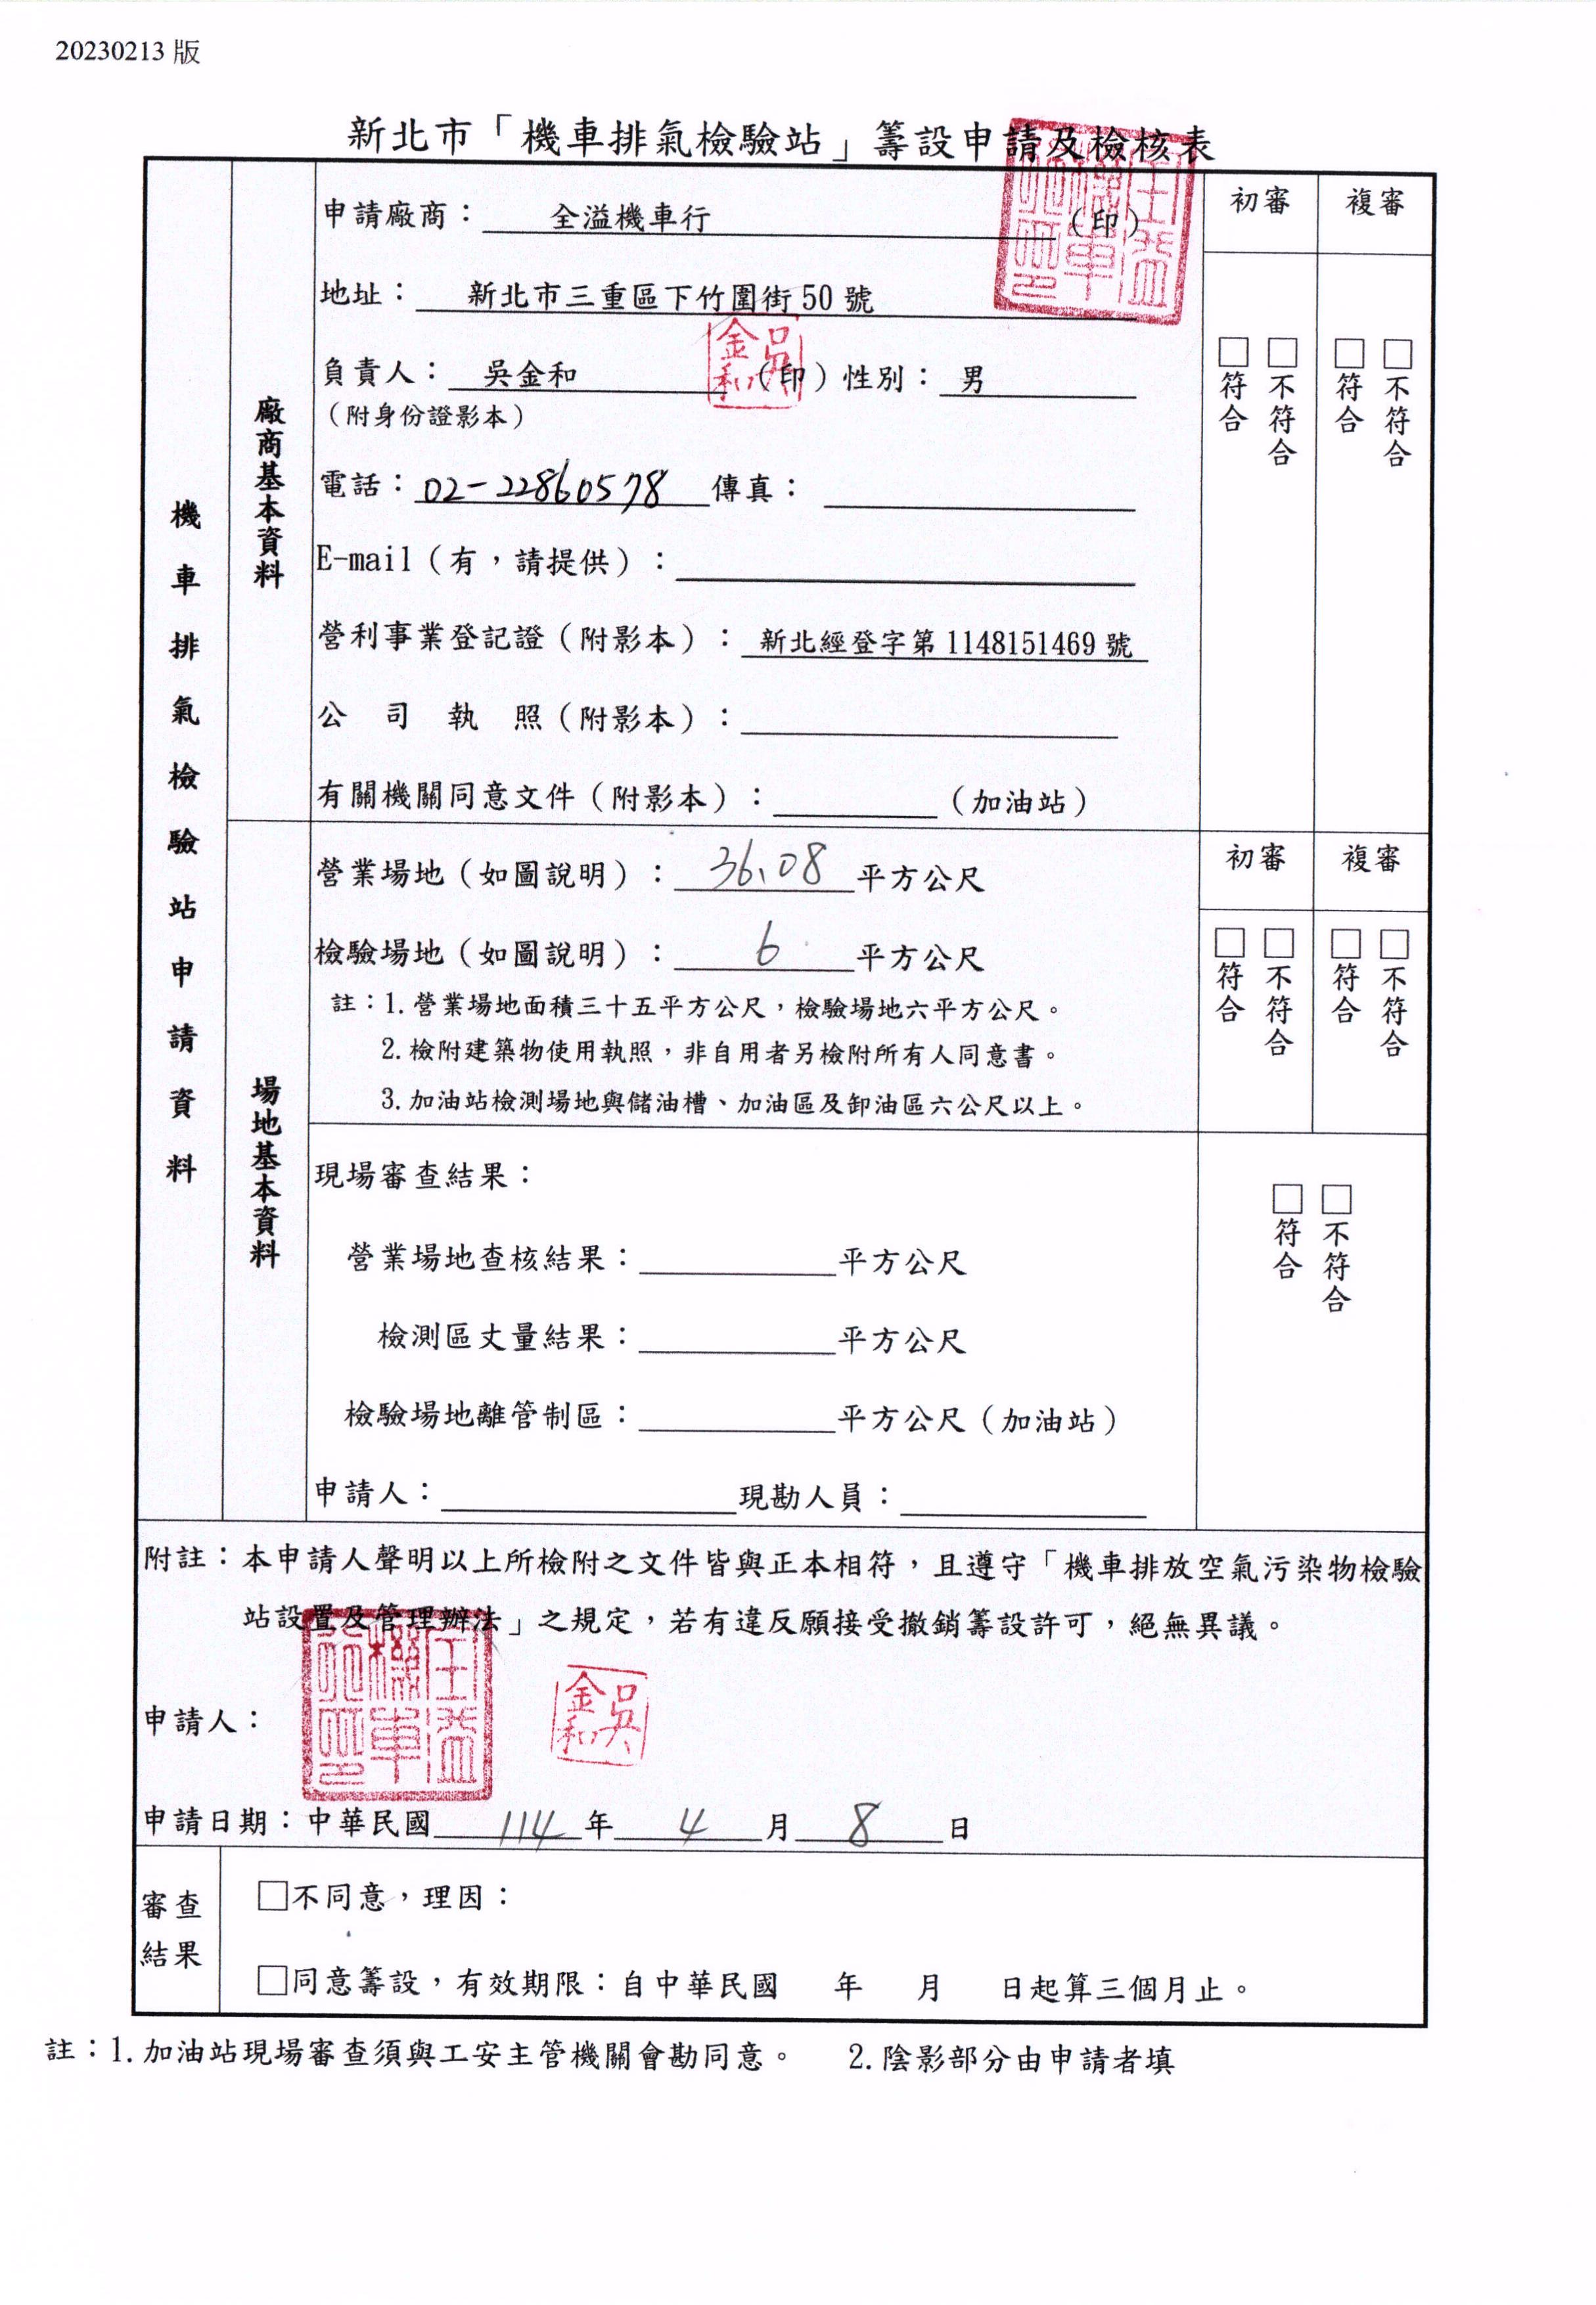 20230213 版
新北市「機車排氣檢驗站」籌設申請及檢核表
機車排氣檢驗站申請資料
廠商基本資料
申請廠商： 全溢機車行 （印）
初審 複審
地址： 新北市三重區下竹圍街 50 號
負責人： 吳金和 （印）性別： 男
吳金和
（附身份證影本）
□符合 □不符合 □符合 □不符合
電話：02-22860578 傳真：
E-mail（有，請提供）：
營利事業登記證（附影本）： 新北經登字第 1148151469 號
公 司 執 照（附影本）：
有關機關同意文件（附影本）： （加油站）
場地基本資料
營業場地（如圖說明）： 36.08 平方公尺
初審 複審
檢驗場地（如圖說明）： 6 平方公尺
□符合 □不符合 □符合 □不符合
註：1.營業場地面積三十五平方公尺，檢驗場地六平方公尺。
2.檢附建築物使用執照，非自用者另檢附所有人同意書。
3.加油站檢測場地與儲油槽、加油區及卸油區六公尺以上。
現場審查結果：
□符合 □不符合
營業場地查核結果： 平方公尺
檢測區丈量結果： 平方公尺
檢驗場地離管制區： 平方公尺（加油站）
申請人： 現勘人員：
附註：本申請人聲明以上所檢附之文件皆與正本相符，且遵守「機車排放空氣污染物檢驗
站設置及管理辦法」之規定，若有違反願接受撤銷籌設許可，絕無異議。
申請人：
吳金和
申請日期：中華民國 114 年 4 月 8 日
審查結果
□不同意，理因：
□同意籌設，有效期限：自中華民國 年 月 日起算三個月止。
註：1.加油站現場審查須與工安主管機關會勘同意。 2.陰影部分由申請者填